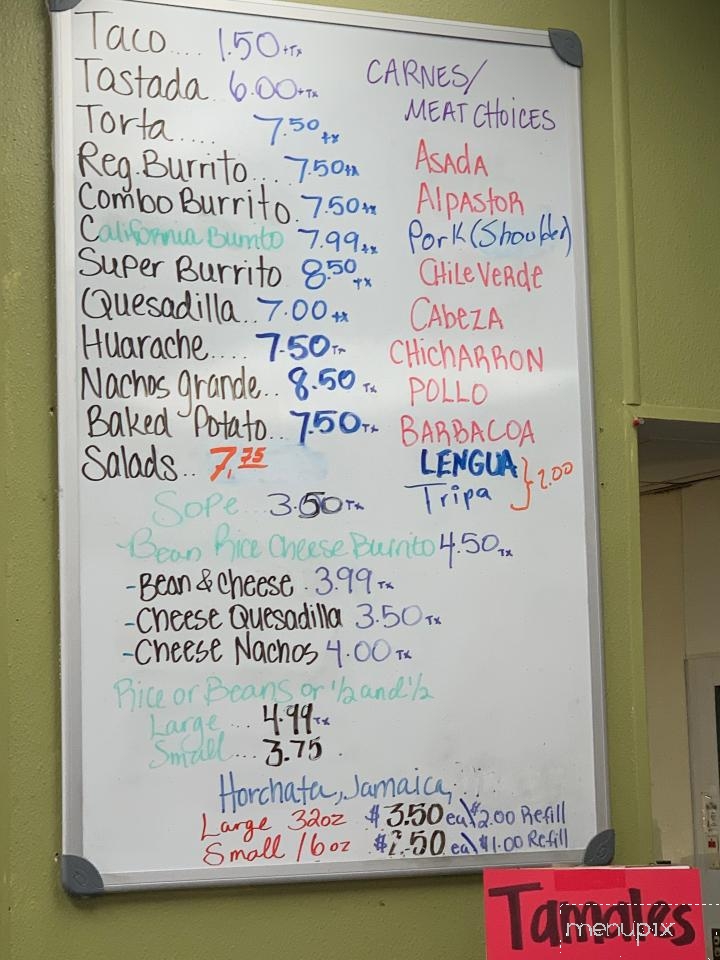 Taco.... 1.50+Tx
Tastada 6.00+Tx
Torta..... 7.50+x
Reg.Burrito... 7.50+x
Combo Burrito. 7.50+x
California Burrito 7.99+x
Super Burrito 8.50+x
Quesadilla.. 7.00+x
Huarache.... 7.50Tx
Nachos grande.. 8.50 Tx
Baked Potato.. 7.50Tx
Salads.. 7.75
CARNES/
MEAT CHOICES
ASADA
Alpastor
Pork (Shoulder)
CHILE VERDE
CABEZA
CHICHARRON
POLLO
BARBACOA
LENGUA
Tripa } 2.00
Sope 3.50Tx
-Bean Rice Cheese Burrito 4.50Tx
-Bean & Cheese . 3.99 Tx
-Cheese Quesadilla 3.50Tx
-Cheese Nachos 4.00 Tx
Rice or Beans or 1/2 and 1/2
Large... 4.99Tx
Small... 3.75
Horchata, Jamaica,
Large 32oz $3.50 ea\$2.00 Refill
Small 16oz $2.50 ea\$1.00 Refill
Tamales
menupix